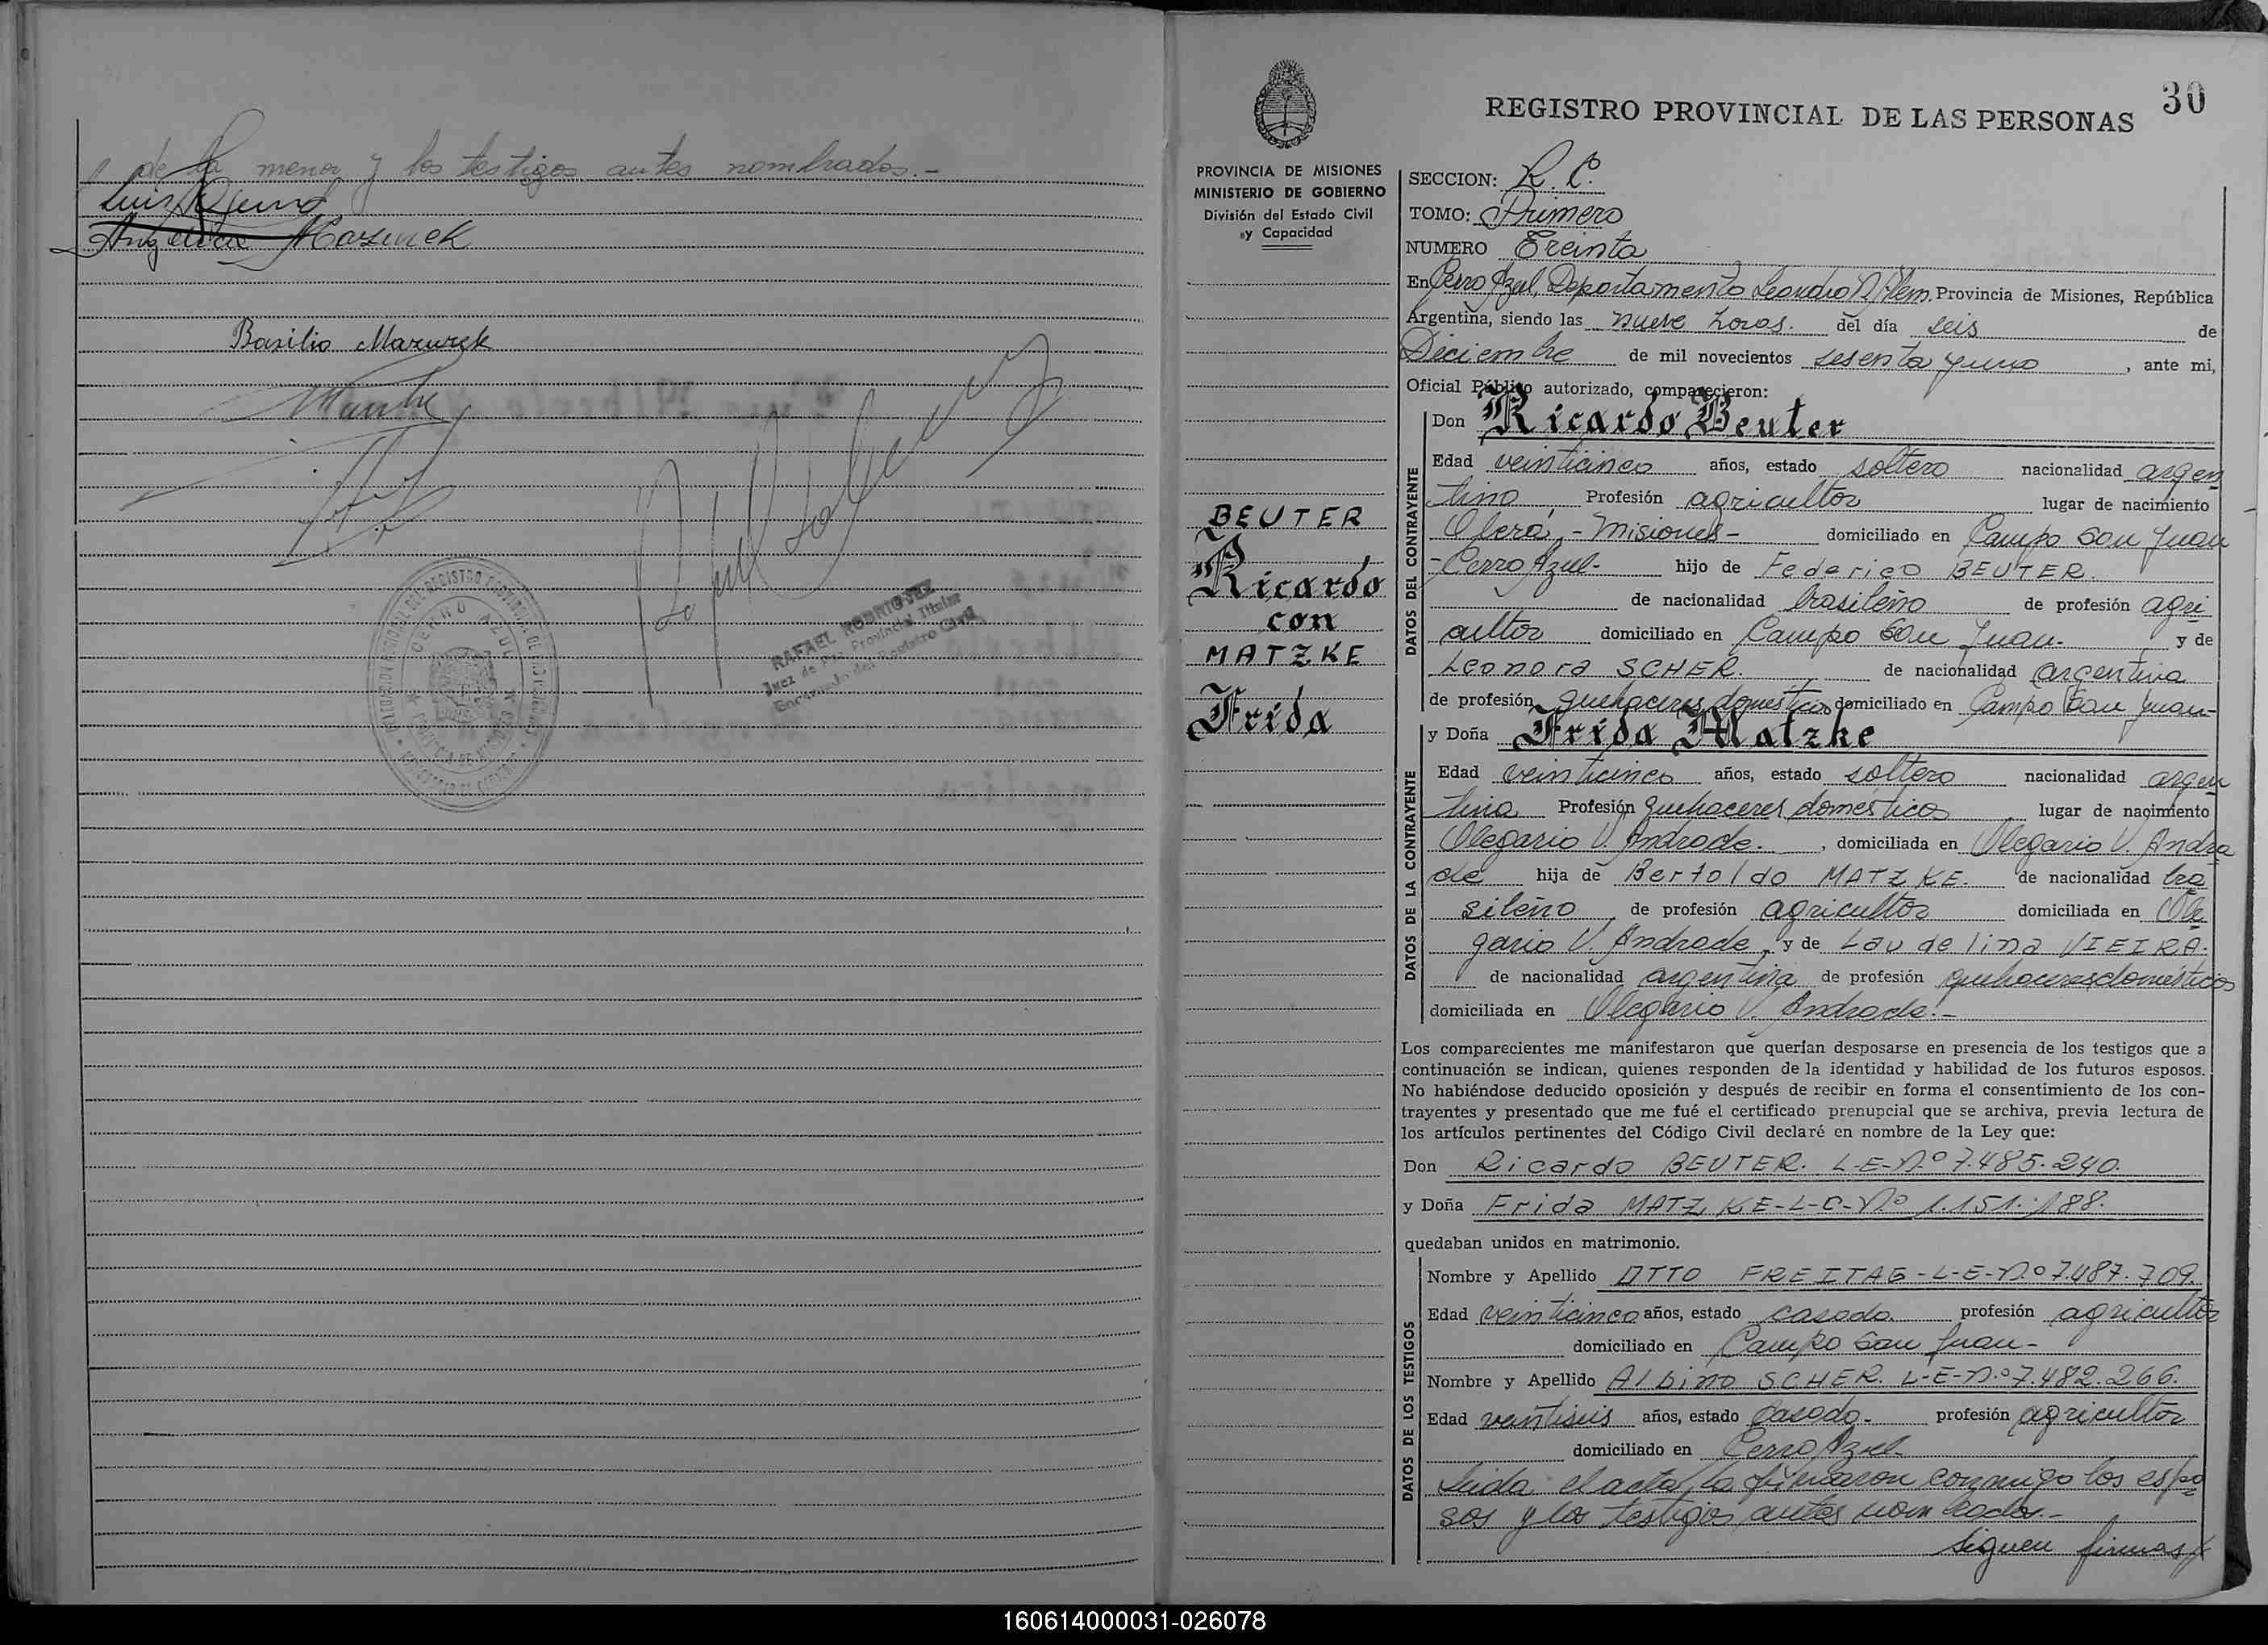 de la menor y los testigos antes nombrados.-
Luis
Angelica Mazurek
Basilio Mazurek
DELEGACION SECCIONAL DEL REGISTRO PROVINCIAL DE LAS PERSONAS
CERRO AZUL
PROVINCIA DE MISIONES
RAFAEL RODRIGUEZ
Juez de Paz Provincial Titular
Encargado del Registro Civil
30
REGISTRO PROVINCIAL DE LAS PERSONAS
PROVINCIA DE MISIONES
MINISTERIO DE GOBIERNO
División del Estado Civil
y Capacidad
BEUTER
Ricardo
con
MATZKE
Frida
SECCION: R. C.
TOMO: Primero
NUMERO Treinta
En Cerro Azul, Departamento Leandro N. Alem, Provincia de Misiones, República
Argentina, siendo las nueve horas. del día seis de
Diciembre de mil novecientos sesenta y uno, ante mi,
Oficial Público autorizado, comparecieron:
DATOS DEL CONTRAYENTE
Don Ricardo Beuter
Edad veinticinco años, estado soltero nacionalidad argen
tino Profesión agricultor lugar de nacimiento
Oberá,-Misiones- domiciliado en Campo San Juan
-Cerro Azul- hijo de Federico BEUTER.
de nacionalidad brasileño de profesión agri
cultor domiciliado en Campo San Juan. y de
Leonora SCHER. de nacionalidad argentina
de profesión quehaceres domesticos domiciliado en Campo San Juan-
DATOS DE LA CONTRAYENTE
y Doña Frida Matzke
Edad veinticinco años, estado soltera nacionalidad argen
tina Profesión quehaceres domesticos lugar de nacimiento
Olegario V. Andrade. , domiciliada en Olegario V. Andra
de hija de Bertoldo MATZKE. de nacionalidad bra
sileño de profesión agricultor domiciliada en Ole
gario V. Andrade, y de Laudelina VIEIRA.
de nacionalidad argentina de profesión quehaceres domésticos
domiciliada en Olegario V. Andrade.-
Los comparecientes me manifestaron que querían desposarse en presencia de los testigos que a
continuación se indican, quienes responden de la identidad y habilidad de los futuros esposos.
No habiéndose deducido oposición y después de recibir en forma el consentimiento de los con-
trayentes y presentado que me fué el certificado prenupcial que se archiva, previa lectura de
los artículos pertinentes del Código Civil declaré en nombre de la Ley que:
Don Ricardo BEUTER. L-E-Nº 7.485.240.
y Doña Frida MATZKE-L-C-Nº 1.151.188.
quedaban unidos en matrimonio.
DATOS DE LOS TESTIGOS
Nombre y Apellido OTTO FREITAG-L-E-N.º 7.487.709.
Edad veinticinco años, estado casado. profesión agricultor
domiciliado en Campo San Juan-
Nombre y Apellido Albino SCHER. L-E-N.º 7.482.266.
Edad veintiseis años, estado casado- profesión agricultor
domiciliado en Cerro Azul-
Leida el acta, la firmaron conmigo los espo
sos y los testigos antes nombrados.-
siguen firmas//
160614000031-026078